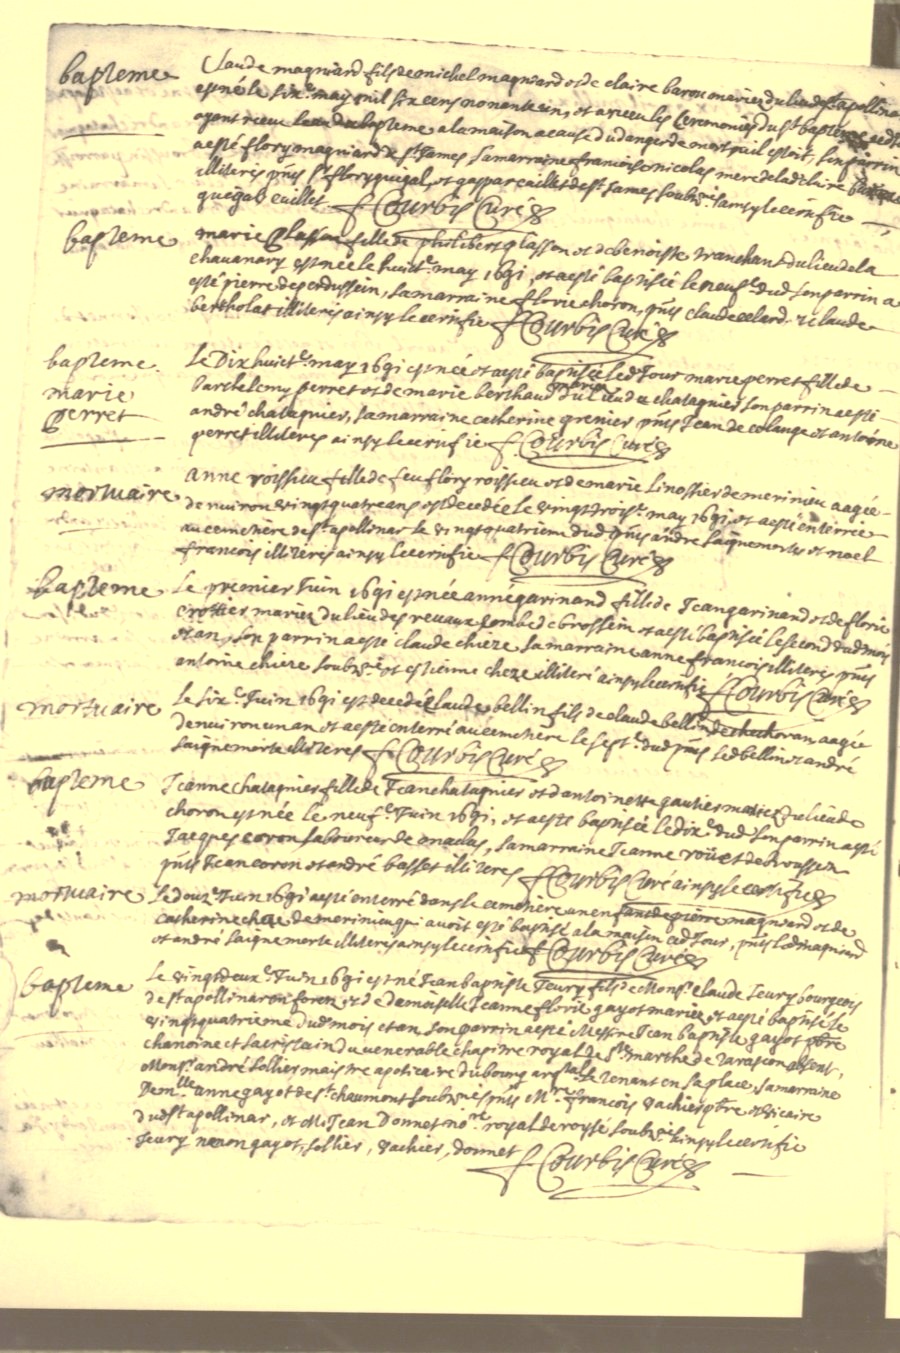 bapteme
Claude magniard fils de michel magniard et de claire baron mariez du lieu de st apollina
est né le six.e may mil six cens nonante un, et a receu les ceremonies du st bapteme
ayant receu leau du bapteme a la maison a cause du danger de mort ou il estoit, son parrin
a esté flory magniard de st James sa marraine francoise nicolas mere de lad claire baron
illiterés pnts sr flory quegal, et gaspar caillet de st James soubz.nés ainsy le certifie
quegal caillet f Courbis Curé
bapteme
marie glasson fille de philibert glasson et de benoiste tranchant du lieu de la
chavanary est née le huict.e may 1691, et a esté baptisée le neuf.e dud son parrin a
esté pierre desperdussein, sa marraine florie choron, pnts claude celard et claude
bertholat illiterés ainsy le certifie f Courbis Curé
bapteme
marie
perret
Le Dix huict.e may 1691 est née et a esté baptisée led Jour marie perret fille de
barthelemy perret et de marie berthaud mariez du lieu de chatagnier son parrin a esté
andré chatagnier, sa marraine catherine grenier pnts Jean de colange et antoine
perret illiteres ainsy le certifie f. Courbis Curé
mortuaire
anne roissieu fille de feu flory roissieu et de marie linossier de merinieu aagée
denviron vingt quatre ans est decedée le vingt trois.e may 1691, et a esté enterrée
au cemetière de st apollinar le vingt quatrieme dud pnts andre saignemorte et noel
francois illiterés ainsy le certifie f Courbis Curé
bapteme
Le premier Juin 1691 est née anne garinand fille de Jean garinand et de florie
crottier mariez du lieu des revaux combe de brossein et a esté baptisée le second dud mois
et an, son parrin a esté claude chieze sa marraine anne francois illiterés pnts
antoine chieze soubz.né et estienne cheze illiteré ainsy le certifie f Courbis Curé
mortuaire
Le six.e Juin 1691 est decedé claude bellin fils de claude bellin de choron, aagé
denviron un an et a esté enterré au cemetière le sept.e dud pnts led bellin et andré
saignemorte illiteres f Courbis Curé
bapteme
Jeanne chatagnier fille de Jean chatagnier et dantoinette gautier mariez du lieu de
choron est née le neuf.e Juin 1691, et a esté baptisée le dix.e dud son parrin a esté
Jacques coron laboureur de anaclas, sa marraine Jeanne roüet de broussen
pnts Jean coron et andré basset illiteres f Courbis Curé ainsy le certifie
mortuaire
Le douz.e Juin 1691 a esté enterré dans le cemetière un enfant de pierre magniard et de
catherine cheze de merinieu qui avoit esté baptisé a la maison ced Jour, pnts led magniard
et andré saignemorte illiteres ainsy le certifie f Courbis Curé
bapteme
Le vingt deux.e Juin 1691 est né Jean baptiste Jeury fils de Mons.r claude Jeury bourgeois
de st apollinar en forez et de Damoiselle Jeanne florie gayot mariez, et a esté baptisé le
vingt quatrieme dud mois et an, son parrin a esté Messire Jean baptiste gayot pbre
chanoine et sacristain du venerable chapitre royal de Ste marthe de Tarascon absent,
Mons.r andré sollier maistre apoticaire du bourg argental le tenant en sa place, sa marraine
Dem.lle anne gayot de st chaumont soubz.nés pnts Mre francois vachier pbre et vicaire
dud st apollinar, et M.e Jean Donnet no.re royal de royse soubz.nés ainsy le certifie
Jeury neron gayot, sollier, vachier, donnet f Courbis Curé